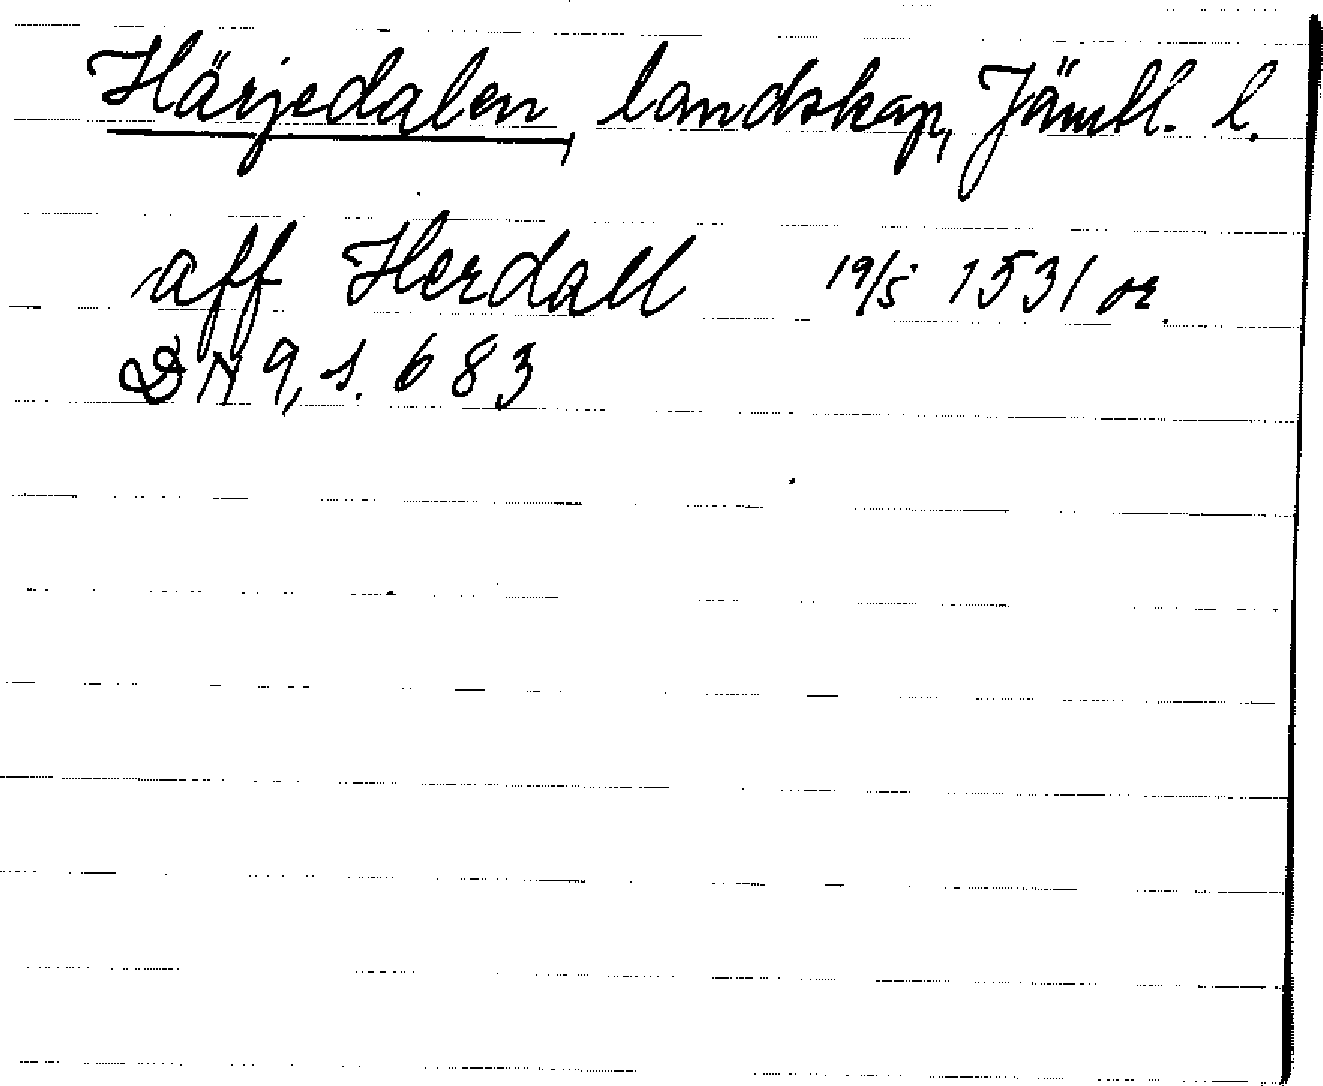 Härjedalen, landskap, Jämtl. l.
aff Herdall 19/5 1531 or.
DN 9, s. 683